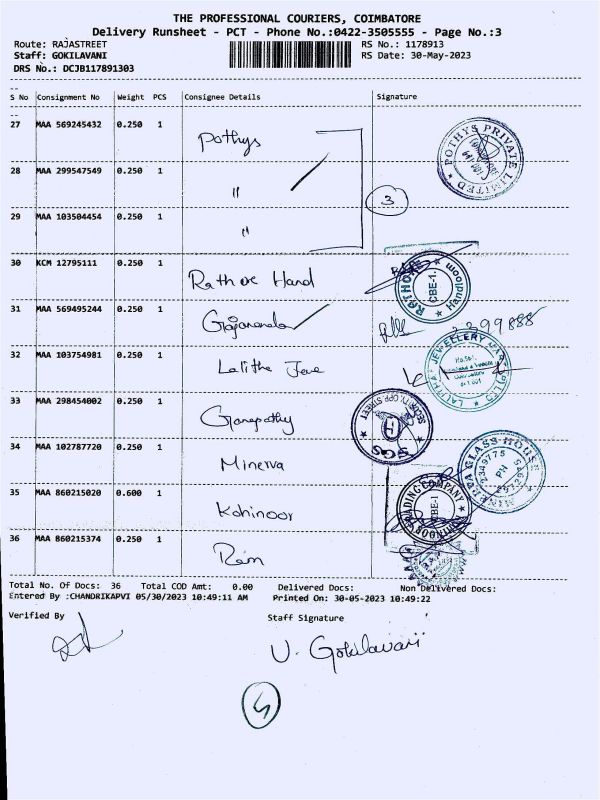 THE PROFESSIONAL COURIERS, COIMBATORE
Delivery Runsheet - PCT - Phone No.:0422-3505555 - Page No.:3
Route: RAJASTREET RS No.: 1178913
Staff: GOKILAVANI RS Date: 30-May-2023
DRS No.: DCJB117891303
S No Consignment No Weight PCS Consignee Details Signature
27 MAA 569245432 0.250 1 Pothys
POTHYS PRIVATE LIMITED
28 MAA 299547549 0.250 1 "
3
29 MAA 103504454 0.250 1 "
30 KCM 12795111 0.250 1 Rathore Hand
RATHORE Handloom CBE-1.
31 MAA 569495244 0.250 1 Gajananda
32 MAA 103754981 0.250 1 Lalitha Jewe
JEWELLERY
33 MAA 298454002 0.250 1 Ganapathy
SGS SECURITY, OPP STREET
34 MAA 102787720 0.250 1 Minerva
MINERVA GLASS HOUSE
PH
35 MAA 860215020 0.600 1 Kohinoor
KOHINOOR TRADING COMPANY CBE-1
36 MAA 860215374 0.250 1 Ram
Total No. Of Docs: 36 Total COD Amt: 0.00 Delivered Docs: Non Delivered Docs:
Entered By :CHANDRIKAPVI 05/30/2023 10:49:11 AM Printed On: 30-05-2023 10:49:22
Verified By Staff Signature
V. Gokilavani